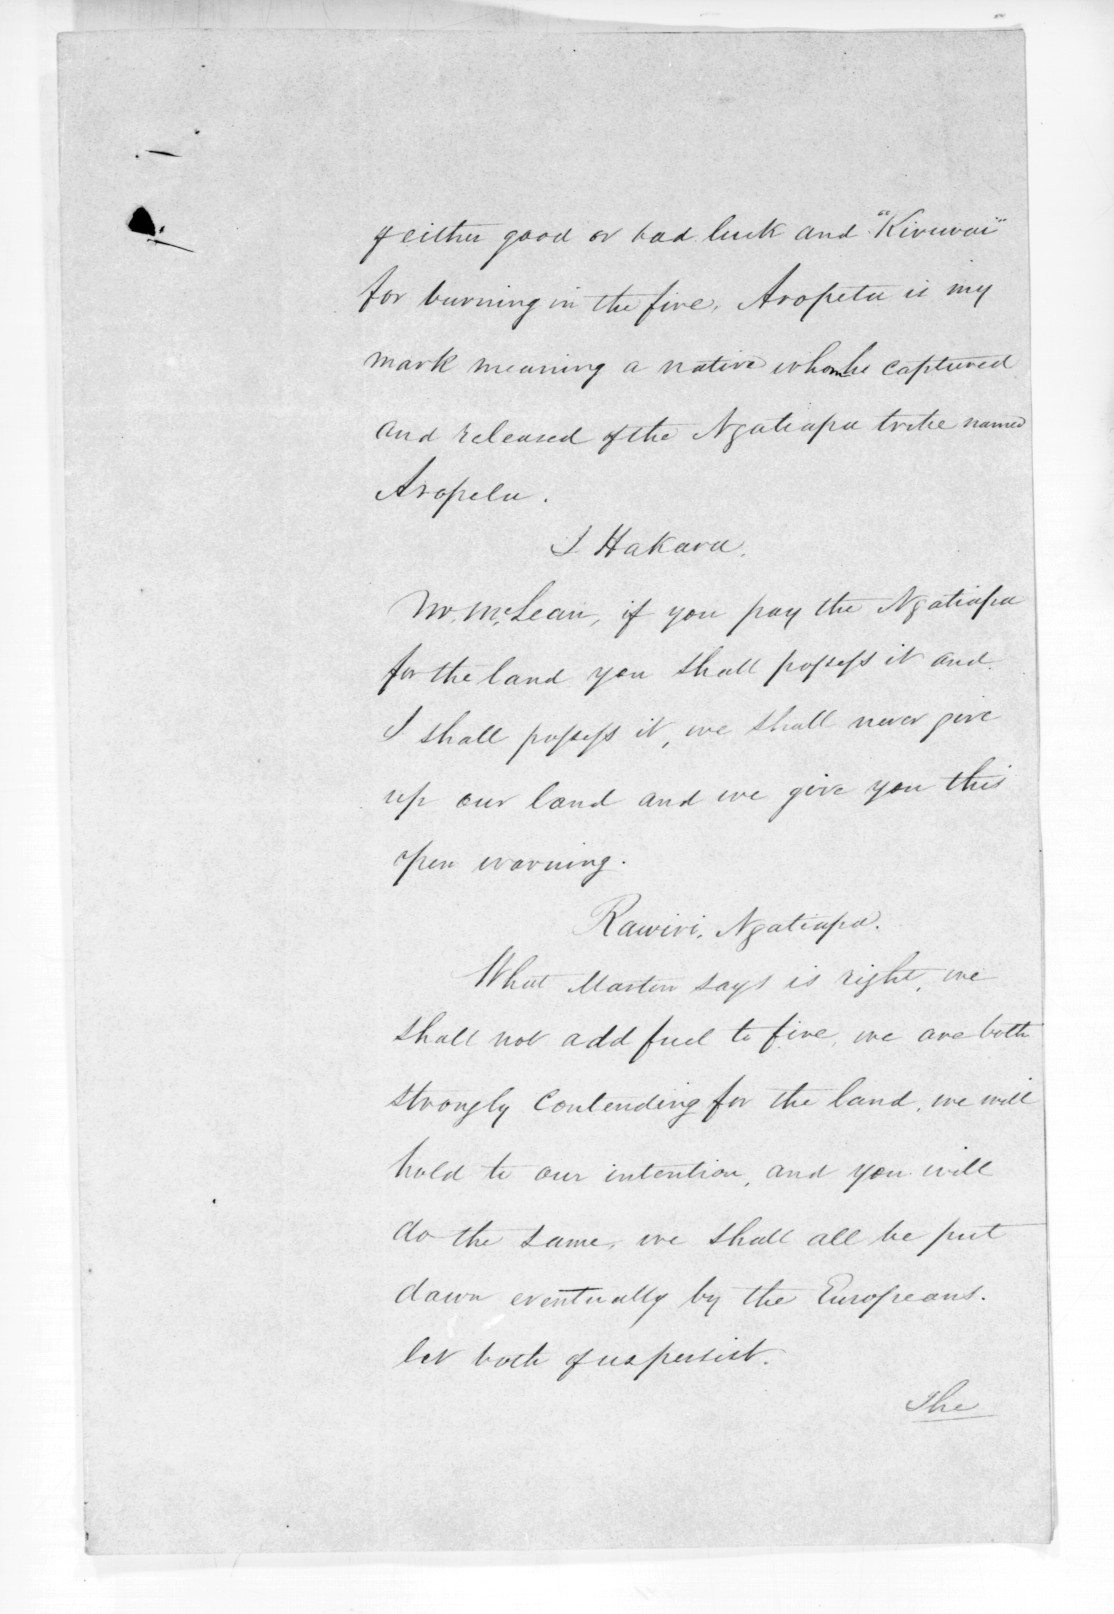 of either good or bad luck and "Kiruwai"
for burning in the fire, Aropeta is my
mark meaning a native whom he captured
and released of the Ngatiapa tribe named
Aropeta.
I Hakara.
Mr. McLean, if you pay the Ngatiapa
for the land you shall possess it and
I shall possess it, we shall never give
up our land and we give you this
open warning.
Rawiri, Ngatiapa.
What Marten says is right, we
shall not add fuel to fire, we are both
strongly contending for the land, we will
hold to our intention, and you will
do the same, we shall all be put
down eventually by the Europeans.
let both of us persist.
The